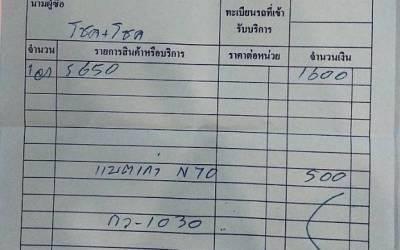 นามผู้ซื้อ
ทะเบียนรถที่เข้า
รับบริการ
โชค+โชค
จำนวน รายการสินค้าหรือบริการ ราคาต่อหน่วย จำนวนเงิน
1ลูก S650 1600
แบตเก่า N70 500
กว-1030